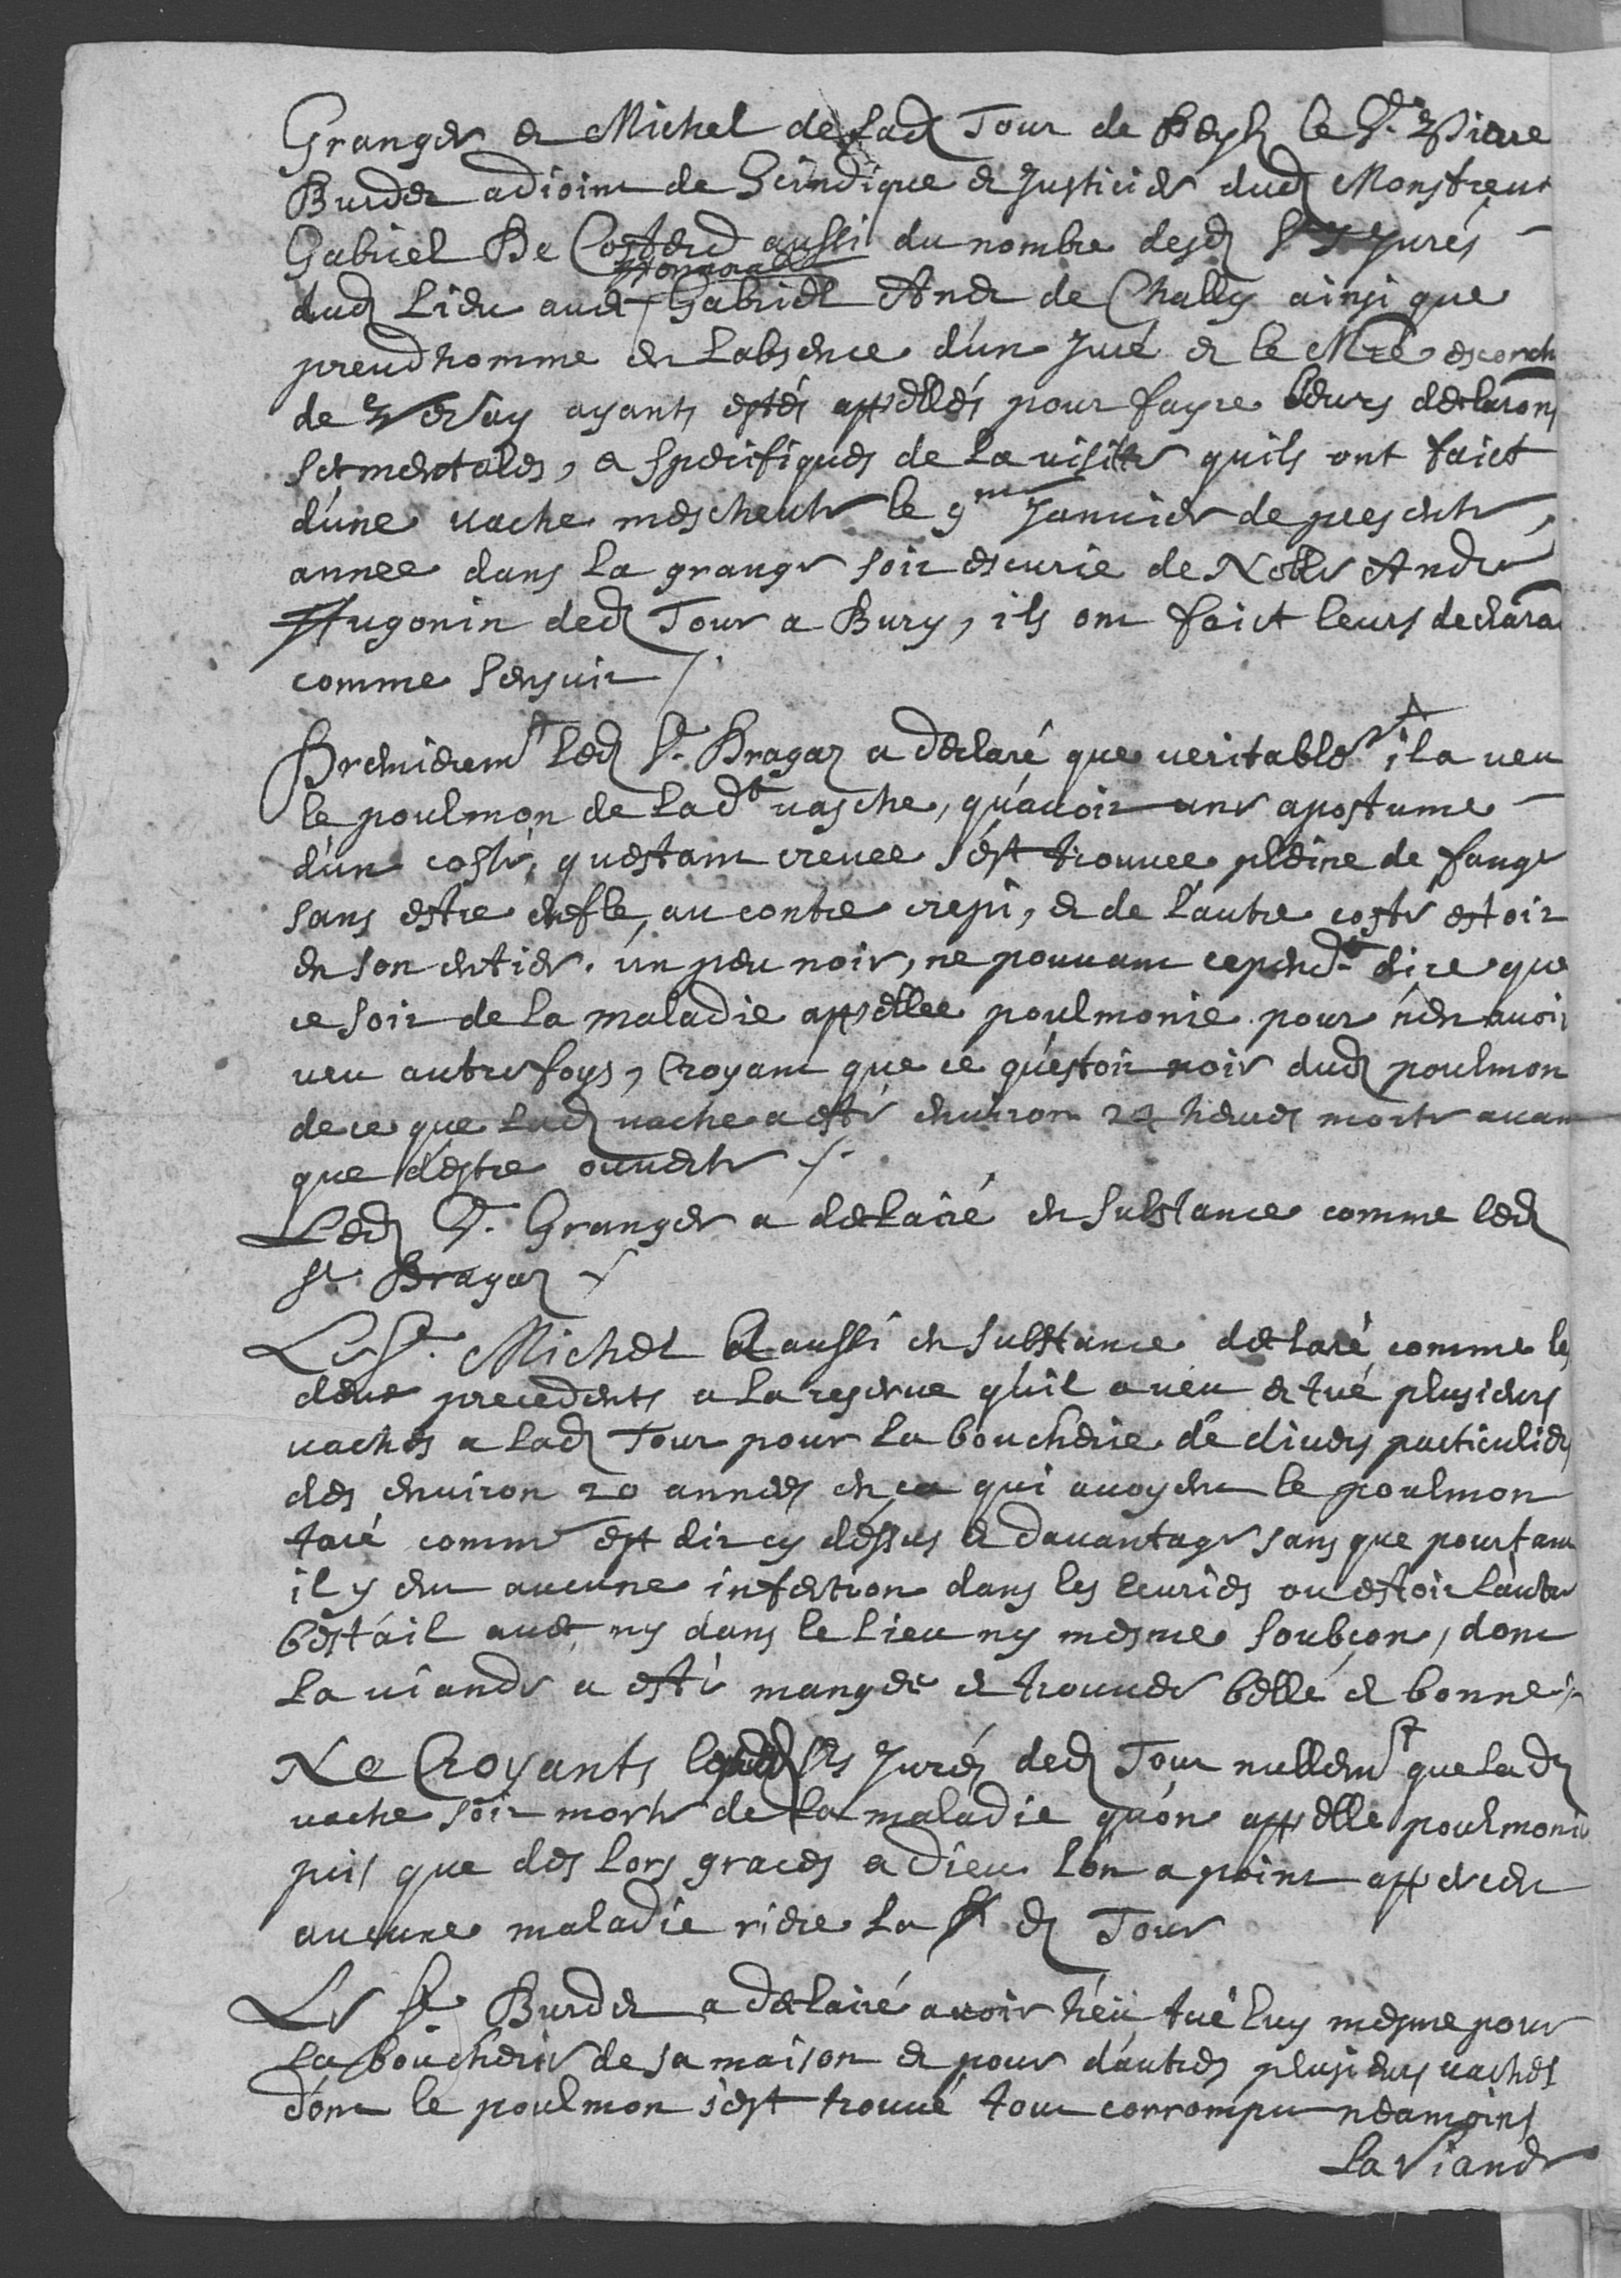 Granger et Michel de lad Tour de Peylz le Sr. Pierre
Burdet adioint de Scindique et Justicier dud Monstreux
Gabriel De Costerd aussi du nombre desd Srs Jurés
dud Lieu avec honnorable Gabriel Anet de Chally ainsi que
preud'homme en Labsence d'un Juré et le Mre escorch
de Vevay ayants estés appellés pour fayre leurs declarons
sermentales, et specifiques de La visite quils ont faict
d'une vache meschente le 9me Janvier de presente,
annee dans La grange soit escurie de Noble André
Hugonin ded Tour a Bury, ils ont faict leurs declara
comme sensuit /.
Premieremt Led Sr. Bragaz a declaré que veritablemt il a veu
le poulmon de Ladte vasche, qu'avoit une apostume
d'un costé, questant crevee s'est trouvee pleine de fange
sans estre enflé, au contre crepi, et de l'autre costé estoit
en son entier, un peu noir, ne pouvant cependt dire que
ce soit de la maladie appellee poulmonie pour n'en avoir
veu autrefoys, Croyant que ce qu'estoit noir dud poulmon
de ce que Lad vache a esté environ 24 heures morte avant
que d'estre ouverte /.
Led Sr. Granger a declairé en substance comme led
Sr. Bragaz /
Le Sr. Michel A aussi en substance declaré comme les
deux precedents a la reserve qu'il a veu et tué plusieurs
vaches a lad Tour pour La boucherie de divers particuliers
des environ 20 annees en ca qui avoyent le poulmon
taré comme est dit cy dessus et davantage sans que pourtant
il y eut aucune infection dans les ecuries ou estoit l'autre
bestail avec, ny dans le Lieu ny mesme soubçon, dont
La viande a esté mangee et trouvee belle et bonne /.
Ne Croyants lesd Srs Jurés ded Tour nullemt que Lad
vache soit morte de La maladie qu'on appelle poulmonie
puis que des lors graces a Dieu l'on a point apperceu
aucune maladie riere La d Tour
Le Sr. Burdet a declairé avoir héü tué luy mesme pour
La boucherie de sa maison et pour d'autres plusieurs vaches
dont le poulmon s'est trouvé tout corrompu neamoins
La Viande